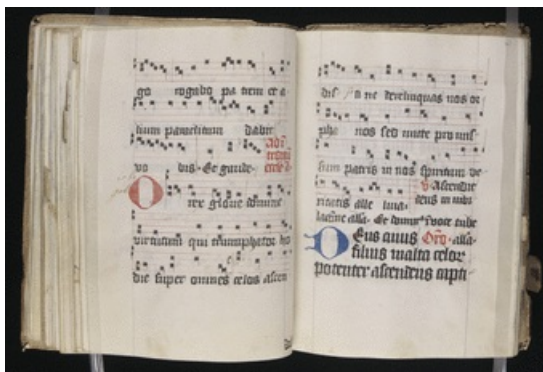 go rogabo pa trem et a
lium paraclitum dabit
vo bis. Et gaude.
O rex glorie domine
virtutum qui triumphator ho
die super omnes celos ascen
dis / o ne derelinquas nos or
pha nos sed mitte promis-
sum patris in nos spiritum ve
ritatis alle luia. v Ascendit
deus in iubi
latione alla. Et domine voce tube
Deus cuius Oro. alla.
filius in alta celor
potenter ascendens capti